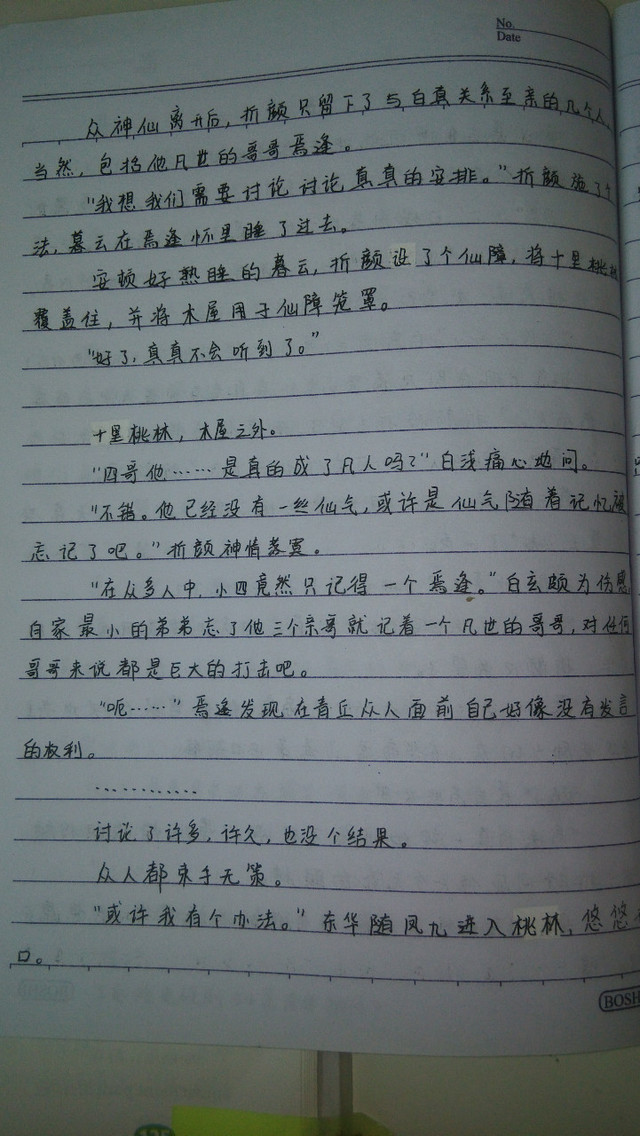 No.
Date
众神仙离开后，折颜只留下了与白真关系至亲的几个人，
当然，包括他凡世的哥哥焉逢。
“我想我们需要讨论讨论真真的安排。”折颜施了个
法，暮云在焉逢怀里睡了过去。
安顿好熟睡的暮云，折颜设了个仙障，将十里桃林
覆盖住，并将木屋用于仙障笼罩。
“好了，真真不会听到了。”
十里桃林，木屋之外。
“四哥他……是真的成了凡人吗？”白浅痛心地问。
“不错。他已经没有一丝仙气，或许是仙气随着记忆被
忘记了吧。”折颜神情落寞。
“在众多人中，小四竟然只记得一个焉逢。”白玄颇为伤感
自家最小的弟弟忘了他三个亲哥就记着一个凡世的哥哥，对任何
哥哥来说都是巨大的打击吧。
“呃……”焉逢发现在青丘众人面前自己好像没有发言
的权利。
…………
讨论了许多，许久，也没个结果。
众人都束手无策。
“或许我有个办法。”东华随凤九进入桃林，悠悠
口。
BOSH